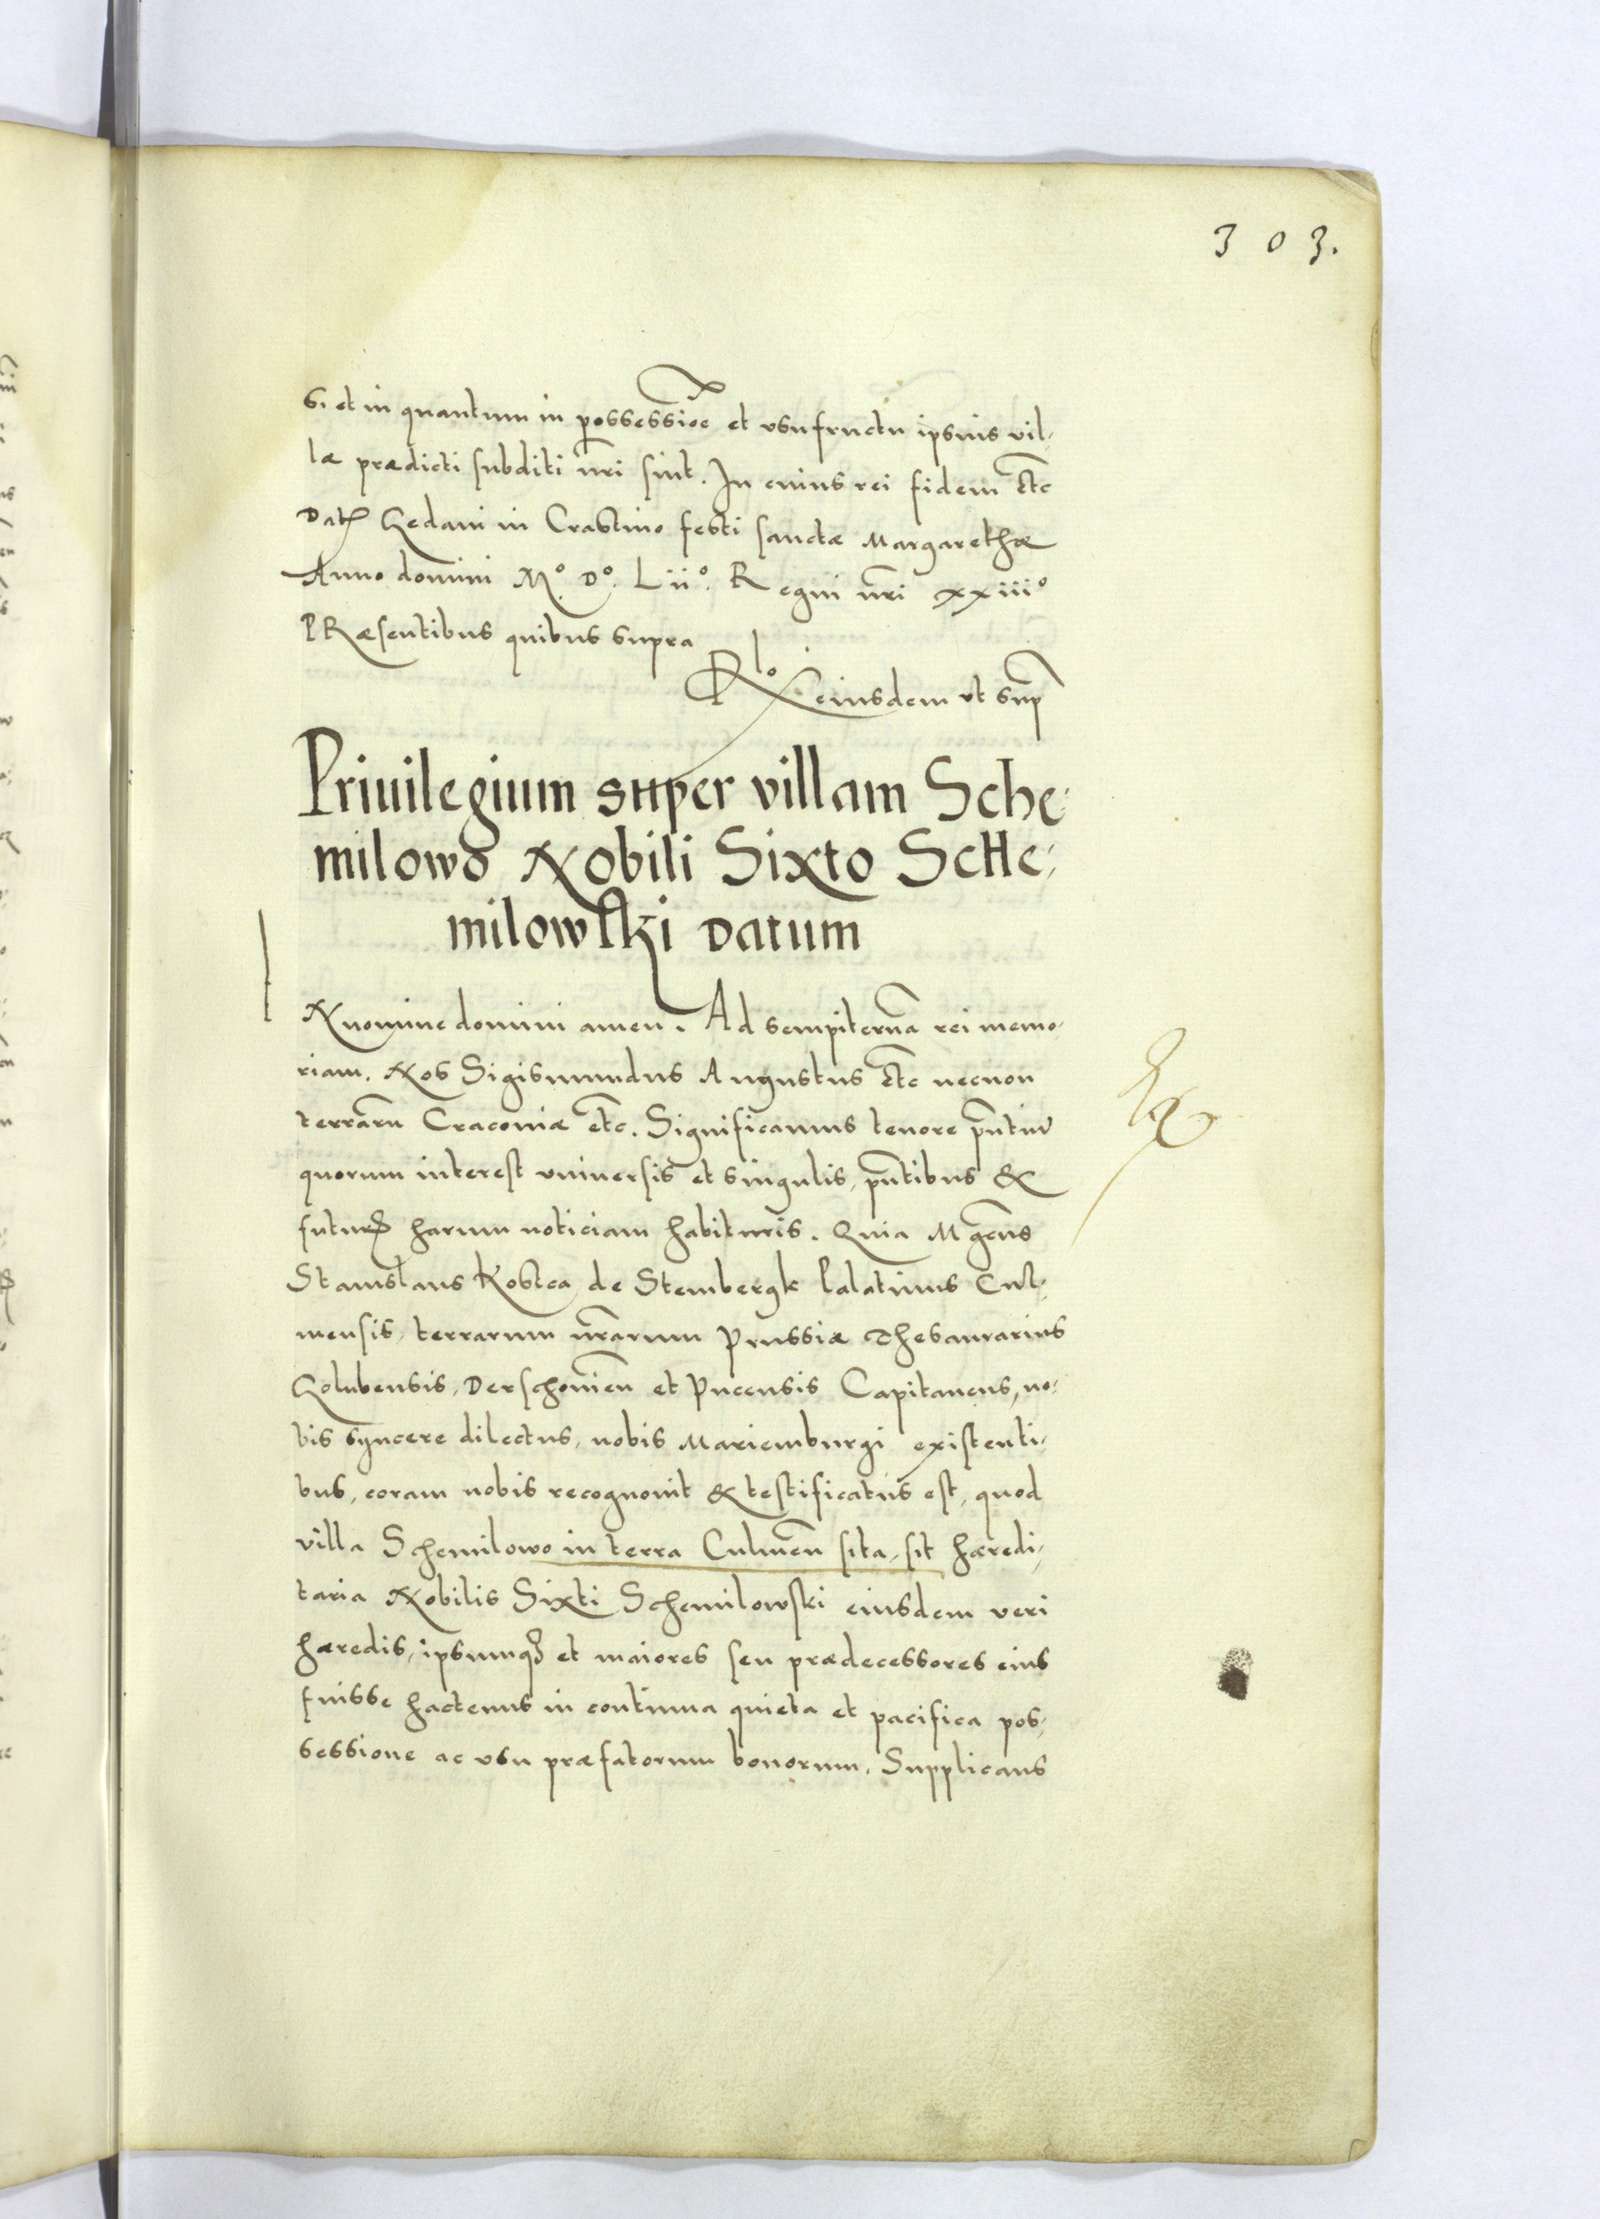 303.
si et in quantum in possessioe et vsufructu ipsius vil-
læ prædicti subditi nri sint. In cuius rei fidem etc
Dat Gedani in Crastino festi sanctæ Margarethæ
Anno domini M.º D.º Lii.º Regni nri xxiiiº
PRæsentibus quibus supra
Rlo eiusdem vt sup
Priuilegium super villam Sche-
milowo Nobili Sixto Sche-
milowski Datum
N nomine domini amen. Ad sempiterna rei memo-
riam. Nos Sigismundus Augustus etc necnon
terraru Cracouiæ etc. Significamus tenore pntiu
quorum interest vniuersis et singulis, pntibus &
futur harum noticiam habituris. Quia Mgcus
Stanislaus Kostca de Stembergk Palatinus Cul-
mensis, terrarum nrarum Prussiæ Thesaurarius
Golubensis, Derschouien et Pucensis Capitaneus, no-
bis syncere dilectus, nobis Mariemburgi existenti-
bus, coram nobis recognouit & testificatus est, quod
villa Schemilowo in terra Culmen sita, sit hæredi-
taria Nobilis Sixti Schemilowski eiusdem veri
hæredis, ipsumq et maiores seu prædecessores eius
fuisse hactenus in continua quieta et pacifica pos-
sessione ac vsu præfatorum bonorum. Supplicans